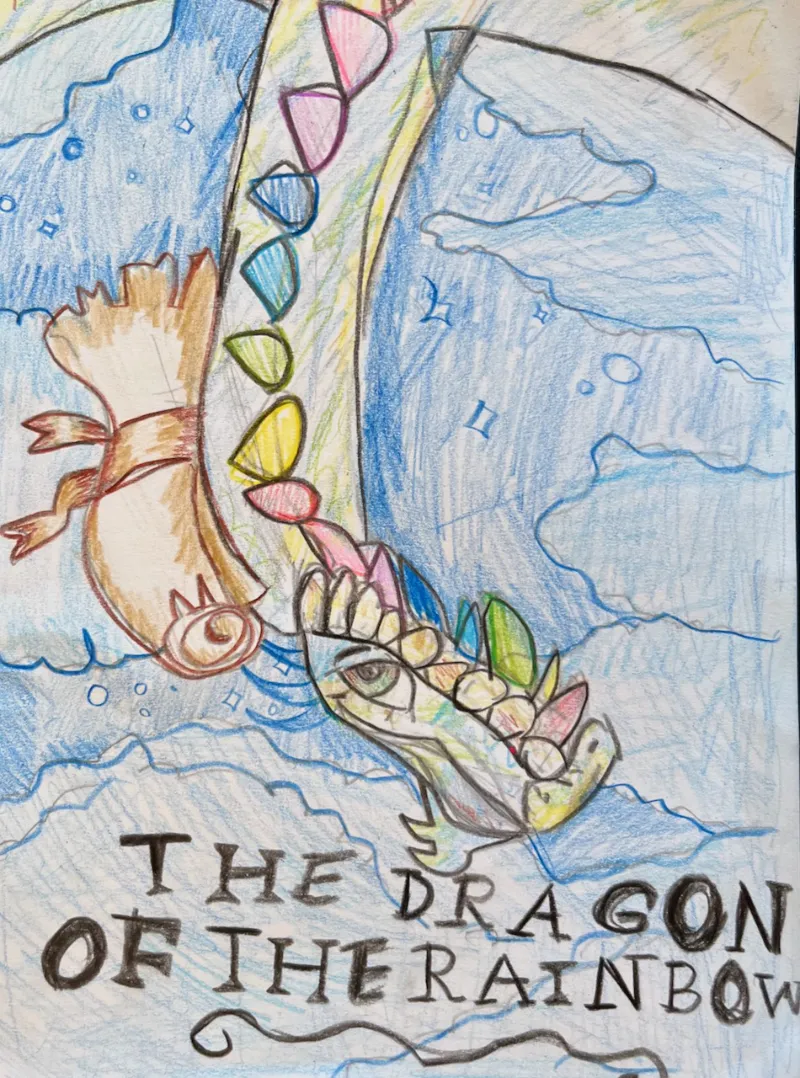 THE DRAGON
OF THE RAINBOW